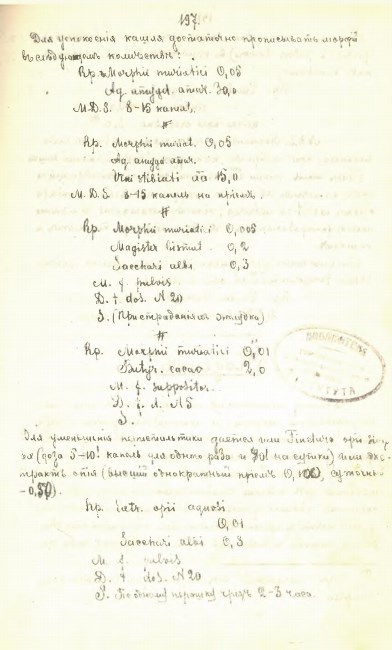 197.
Для успокоенія кашля достаточно прописывать морфій
въ слѣдующемъ количествѣ:
Rp. Morphii muriatici 0,05
Aq. amygd. amar. 30,0
M.D.S. 8-15 капель.
#
Rp. Morphii muriat. 0,05
Aq. amygd. amar.
Vini stibiati āā 15,0
M.D.S. 8-15 капель на пріемъ.
#
Rp. Morphii muriatici 0,005
Magister bismut. 0,2
Sacchari albi 0,3
M. f. pulvis
D. t. dos. N 20
S. (При страданіяхъ желудка)
#
Rp. Morphii muriatici 0,01
Butyr. cacao 2,0
M. f. supposito.
D. t. d. N 5
S.
Для уменьшенія перистальтики дается или Tinctura opii
(доза 5-10 капель для одного раза и на сутки) или экс-
трактъ опія (высшій однократный пріемъ 0,10, суточный
-0,50).
Rp. Extr. opii aquosi
0,01
Sacchari albi 0,3
M. f. pulvis
D. t. dos. N 20
S. По одному порошку чрезъ 2-3 часа.